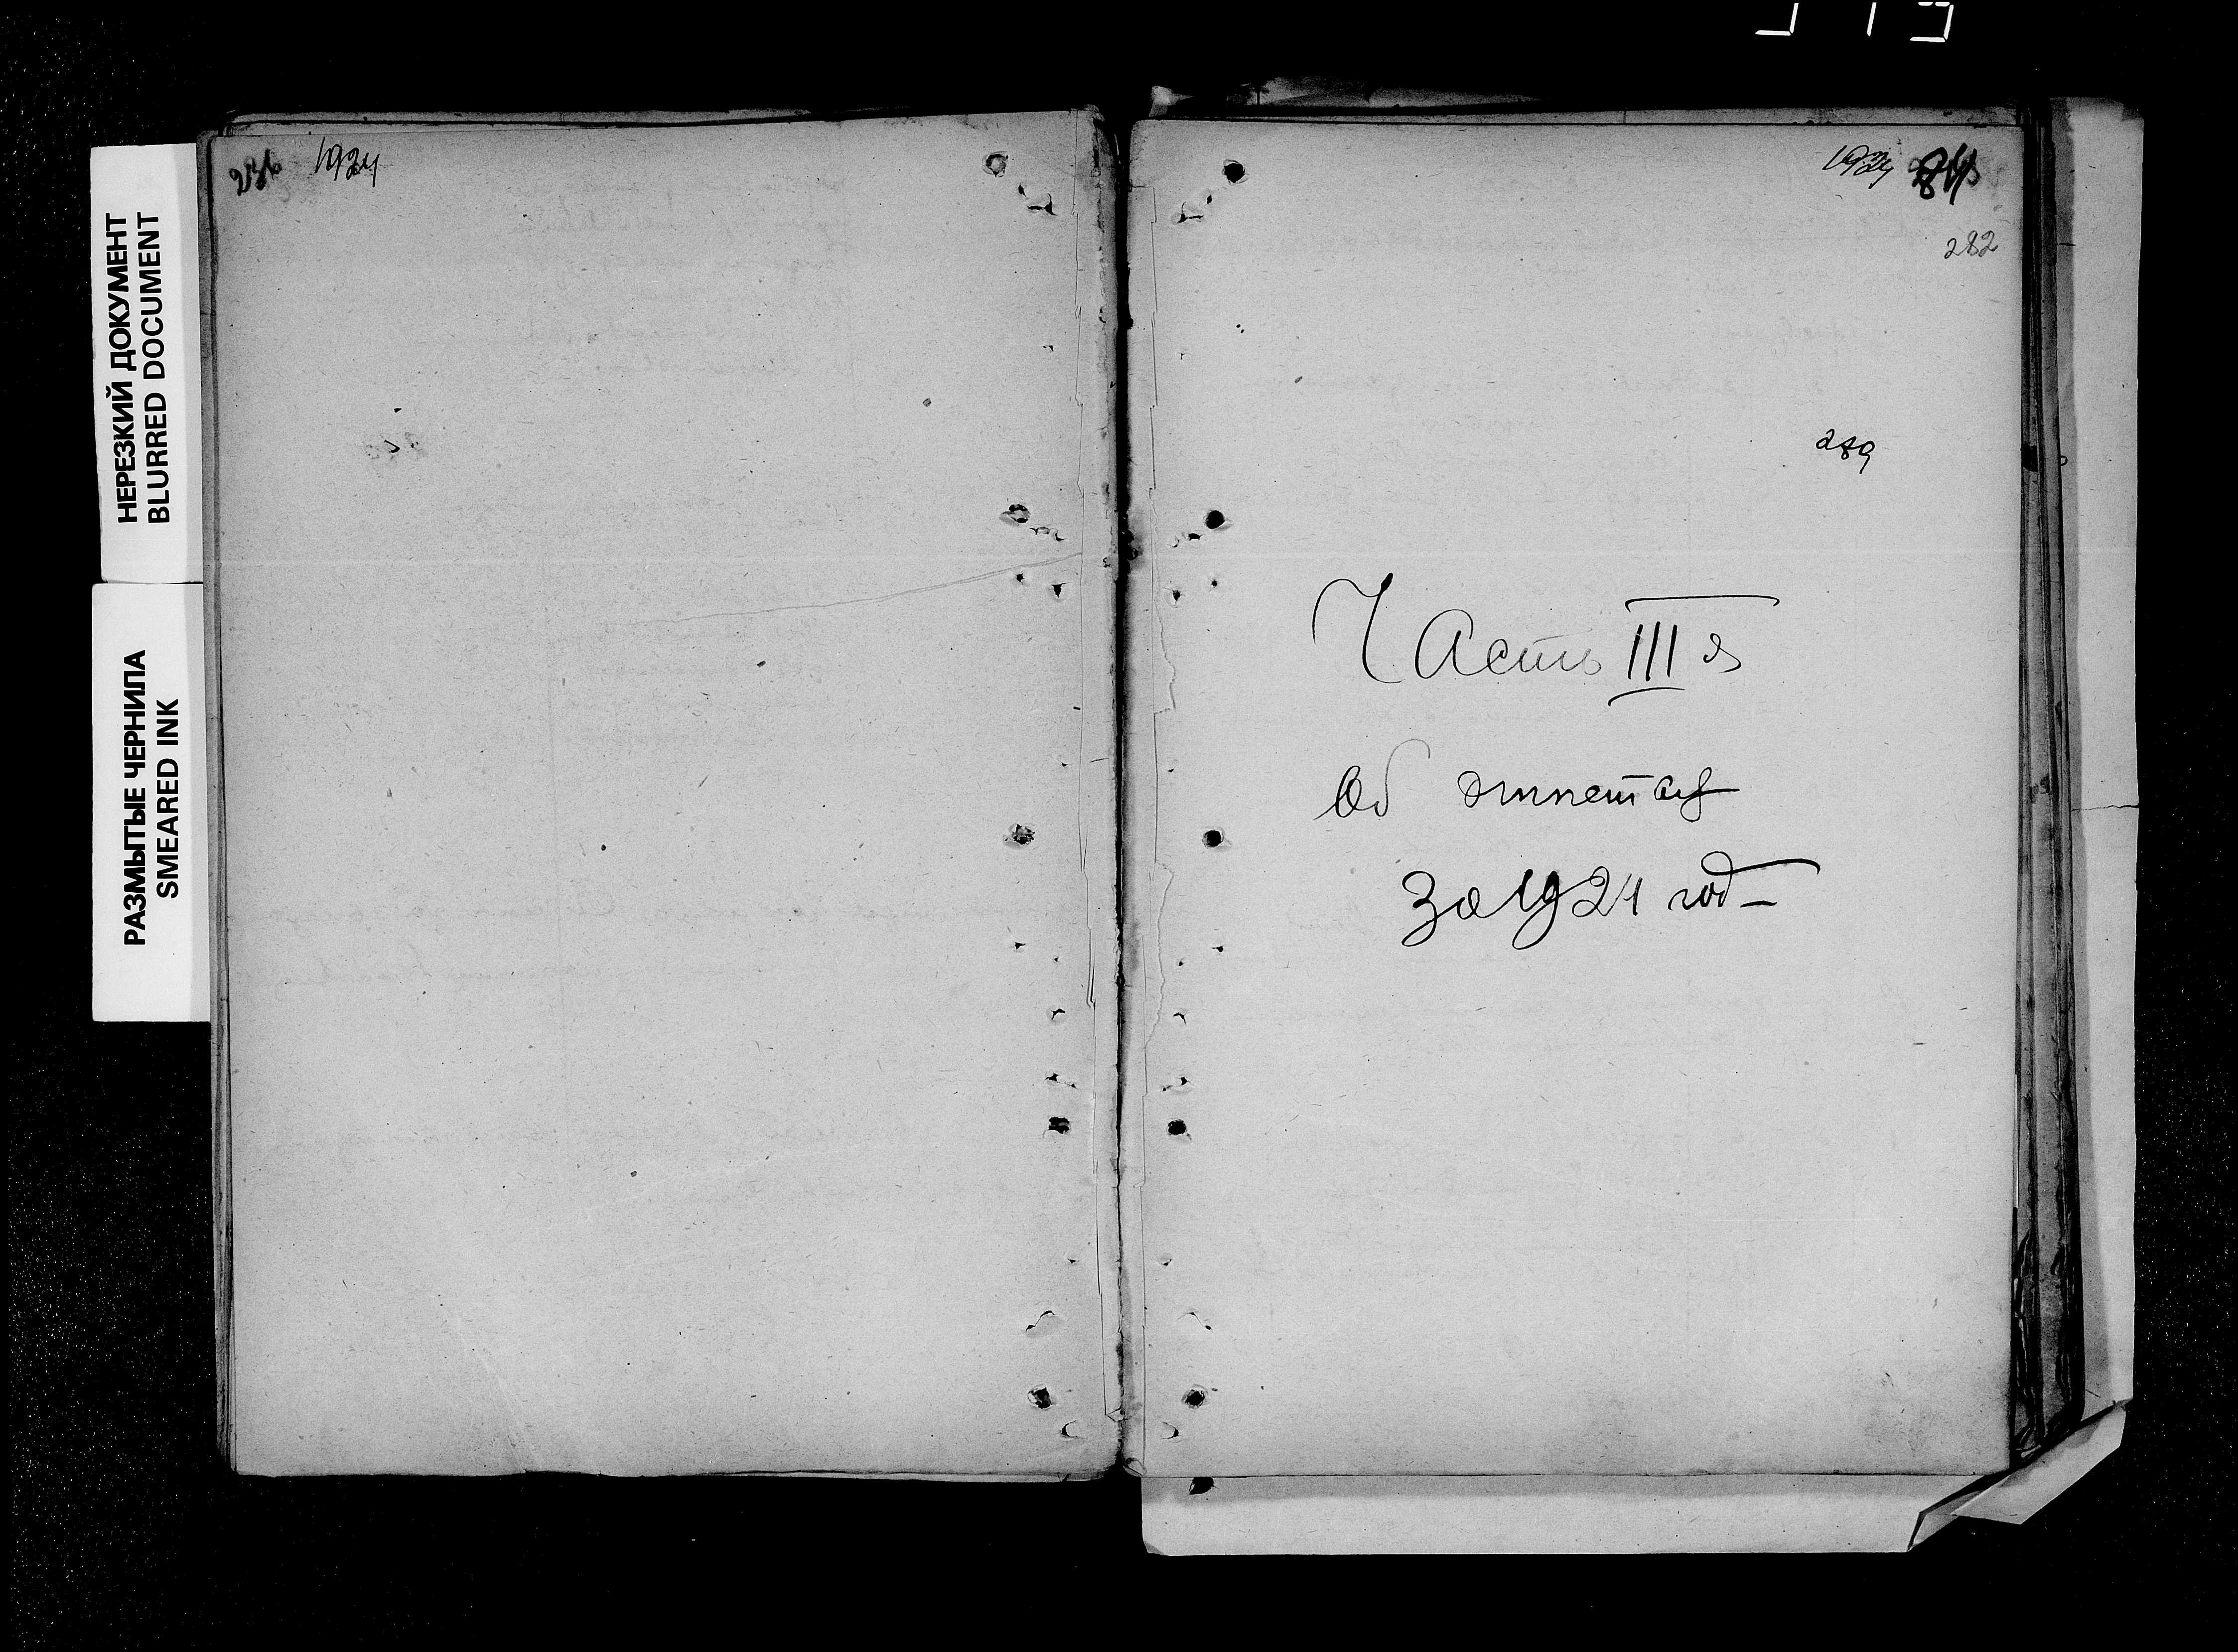 НЕРЕЗКИЙ ДОКУМЕНТ
BLURRED DOCUMENT
РАЗМЫТЫЕ ЧЕРНИЛА
SMEARED INK
1924
1924
282
289
Часть III я
Об
за 1924 год